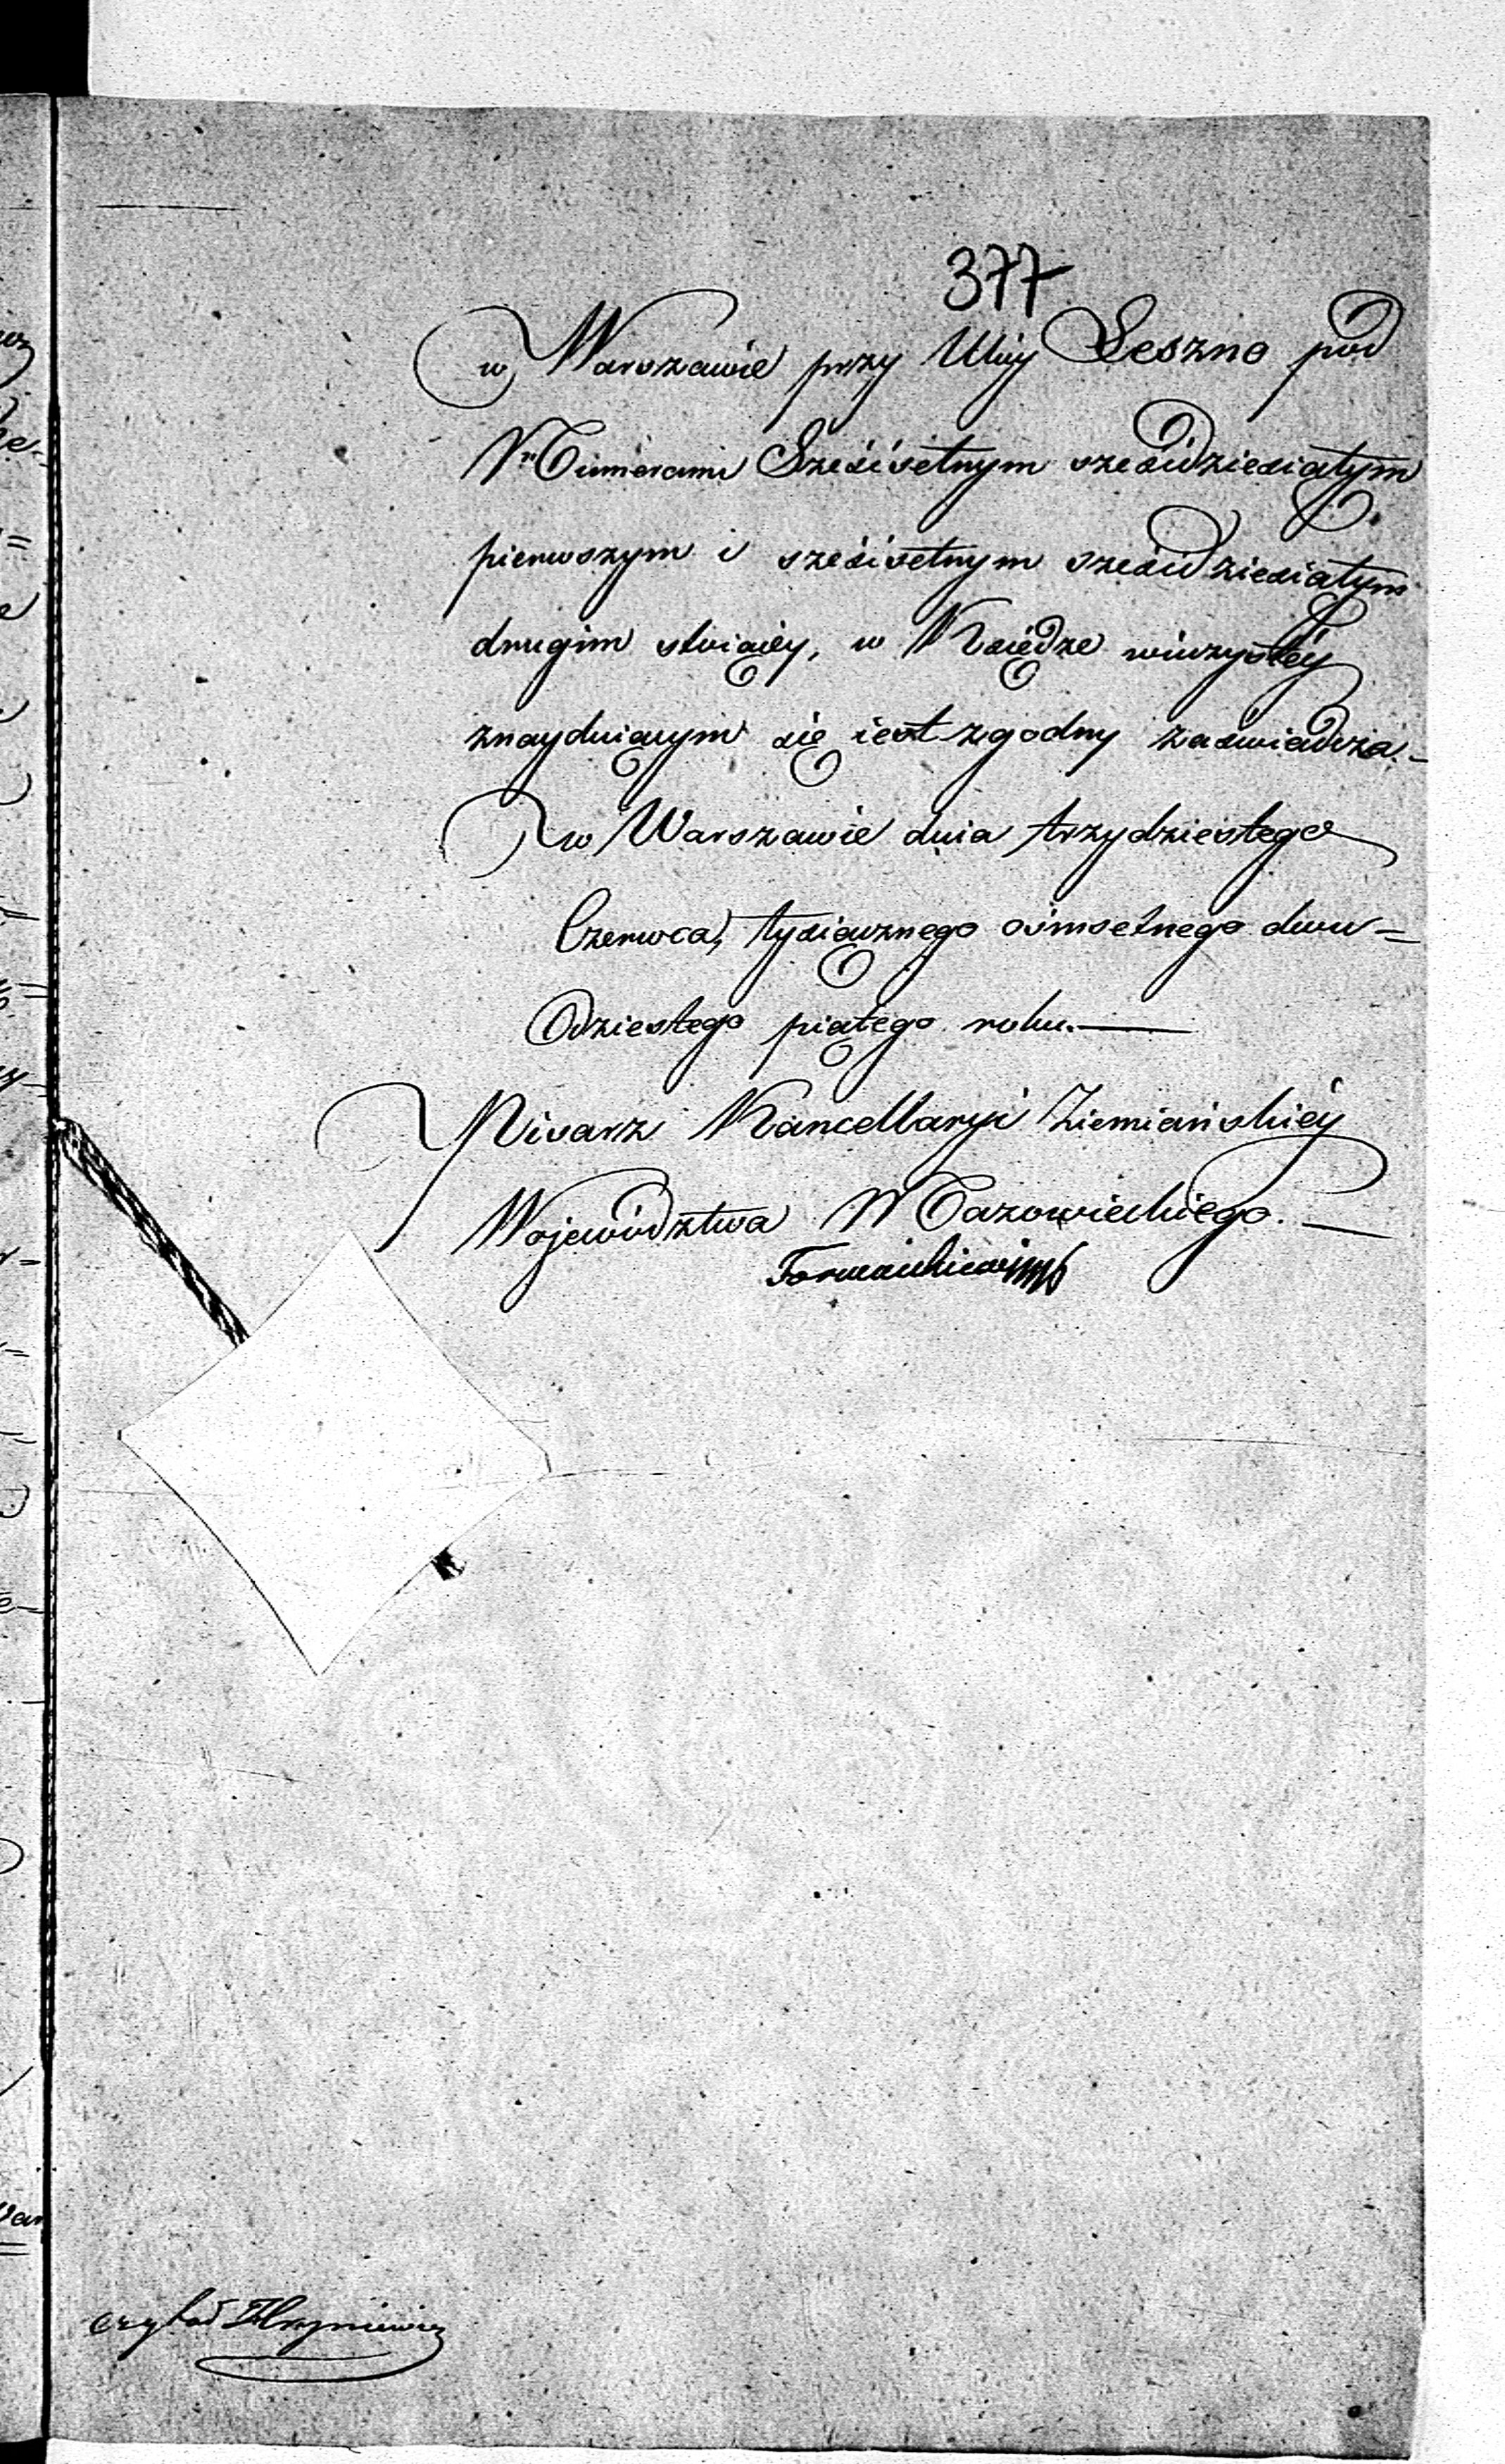 377
w Warszawie przy Ulicy Leszno pod
Numerami Sześćsetnym sześćdziesiątym
pierwszym i sześćsetnym sześćdziesiątym
drugim stoiącey, w Księdze wieczystey
znayduiącym się iest zgodny zaświadcza.-
w Warszawie dnia trzydziestego
Czerwca, tysiącznego ośmsetnego dwu=
dziestego piątego roku.—
Pisarz Kancellaryi Ziemiańskiéy
Województwa Mazowieckiego.—
czytał